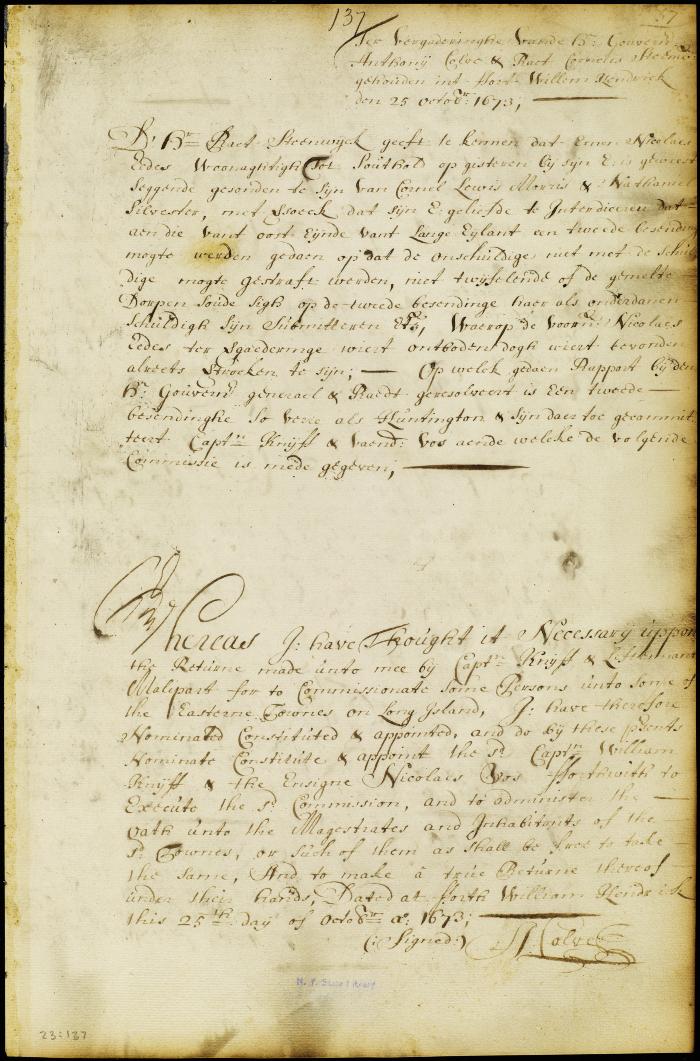 137
Ter Vergaderinghe vande Hr: Gouvernr
Anthonij Colve & Raet Cornelis Steenw
gehouden int fort Willem Hendrick
den 25 octobr: 1673;
D' Hr Raet Steenwijck geeft te kennen dat Emen Nicolaes
Eedes Woonaghtigh Tot Southold op gisteren bij sijn E: is geweest
seggende gesonden te sijn van Cornel Lewis Morris & Nathaniel
Silvester, met Versoeck dat sijn E: geliefde te Interdieeren dat
aen die vant oost Eijnde vant Lange Eylant een tweede besending
mogte werden gedaen op dat de onschuldige niet met de schul
dige mogte gestraft werden, niet twijfelende of de gemelte
Dorpen soude sigh op de tweede besendinge haer als onderdanen
schuldigh sijn Submitteren &ca, Waerop de voorn: Nicolaes
Eedes ter Vergaederinge wiert ontboden dogh wiert bevonden
alreets Vertrocken te sijn; — Op welck gedaen Rapport bij den
Hr: Gouverr generael & Raedt geresolveert is Een tweede —
besendinghe So verre als Huntington & sijn daer toe gecommit
teert Captn Knijff & Vaend: Vos aende welcke de volgende
Commissie is mede gegeven;
Whereas J: have Thought it Necessary uppon
the Returne made unto mee by Captn Knijff & Leftenant
Malipart for to Commissionate some Persons unto some of
the Easterne Townes on Long Jsland, J: have therefore
Nominated Constituted & appointed, and do by these psents
Nominate Constitute & appoint the sd Captn William
Knijff & the Ensigne Nicolaes Vos ffortwith to
Execute the sd Commission, and to administer the
oath unto the Magestrates and Jnhabitants of the
sd Townes, or such of them as shall be free to take
the same, And to make a true Returne thereof
under their hands, Dated at fforth William Hendrick
this 25th day of Octobr ao: 1673;
(:Signed:) A Colve
N. Y. State Library
23:137